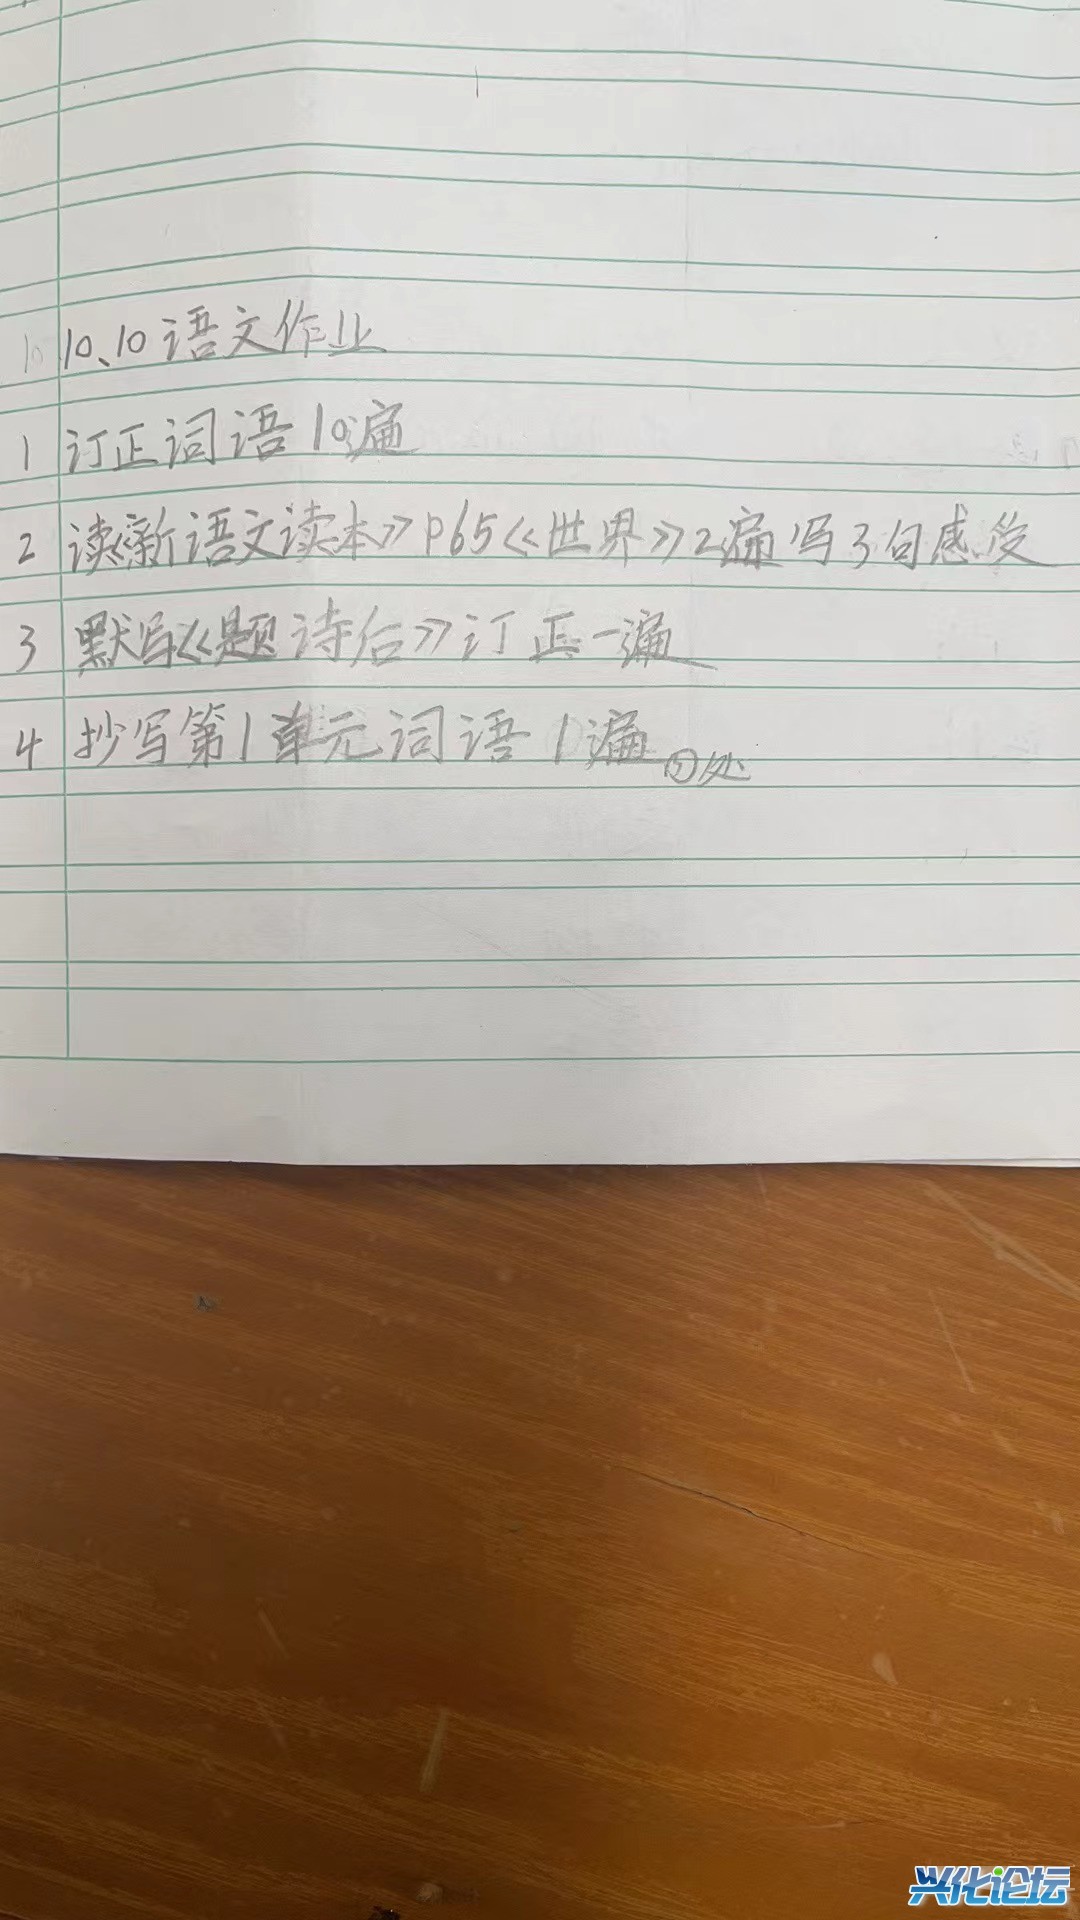 10、10语文作业
1 订正词语10遍
2 读《新语文读本》P65《世界》2遍写3句感受
3 默写《题诗后》订正一遍
4 抄写第1单元词语1遍
处
兴化论坛